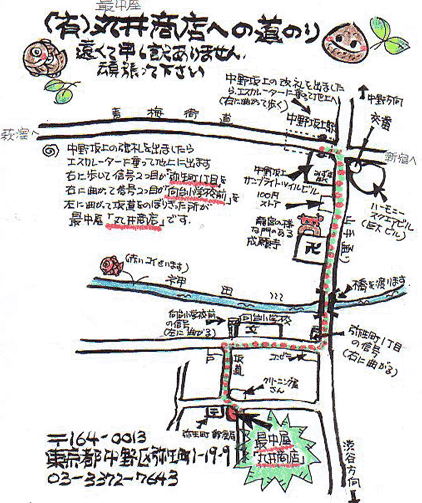 最中屋
(有)丸井商店への道のり
遠くて申し訳ありません
頑張って下さい
中野坂上の改札を出ましたら
エスカレーターに乗って地上へ
(右に曲がって歩く)
中野方向
交番
青梅街道
中野坂上駅
荻窪へ
新宿へ
中野坂上の改札を出ましたら
エスカレーターに乗って地上に出ます
右に歩いて信号2つ目が弥生町1丁目を
右に曲がって信号2つ目が向台小学校前を
左に曲がって坂道をのぼりきった所が
最中屋「丸井商店」です。
みずほ
中野坂上
サンブライトツインビル
100円
ストア
ハーモニー
スクエアビル
山手通り
成願寺
卍
(赤いコイもいます)
神田川
橋を渡ります
向台小学校前
の信号
(左に曲がる)
向台小学校
文
弥生町1丁目
の信号
(右に曲がる)
坂道
クリーニング屋
さん
弥生町郵便局
最中屋
「丸井商店」
渋谷方向
〒164-0013
東京都中野区弥生町1-19-9
03-3372-7643